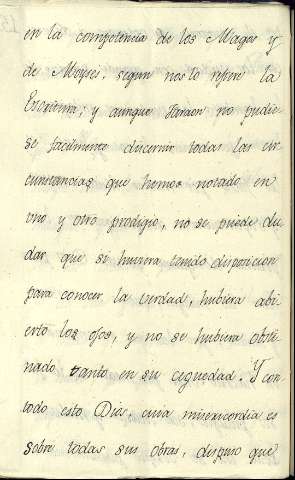 en la competencia de los Magos y
de Moyses, segun nos lo refiere la
Escritura; y aunque Faraon no pudie-
se facilmente dicernir todas las cir-
cunstancias que hemos notado en
uno y otro prodigio, no se puede du-
dar que si huviera tenido disposicion
para conocer la verdad, hubiera abi-
erto los ojos, y no se hubiera obsti-
nado tanto en su ceguedad. Y con-
todo esto Dios, cuia misericordia es
sobre todas sus obras, dispuso que